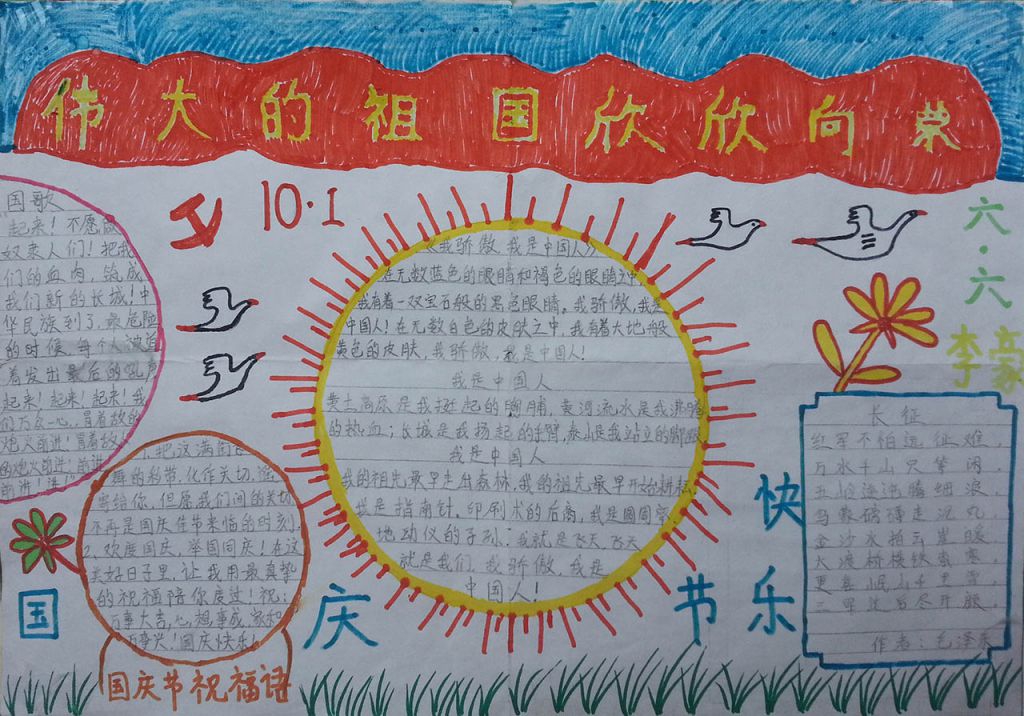 伟大的祖国欣欣向荣
国歌
起来！不愿做
奴隶人们！把我
们的血肉，筑成
我们新的长城！中
华民族到了，最危险
的时候，每个人被迫
着发出最后的吼声
起来！起来！起来！我
们万众一心，冒着敌的
炮火前进！冒着敌人
的炮火前进！前进
前进！进！
10·1
《我骄傲，我是中国人》
在无数蓝色的眼睛和褐色的眼睛之中
我有着一双宝石般的黑色眼睛，我骄傲，我是
中国人！在无数白色的皮肤之中，我有着大地般
黄色的皮肤，我骄傲，我是中国人！
我是中国人
黄土高原是我挺起的胸脯，黄河流水是我沸腾
的热血；长城是我扬起的手臂，泰山是我站立的脚跟
我是中国人
我的祖先最早走出森林，我的祖先最早开始耕耘
我是指南针、印刷术的后裔，我是圆周率
地动仪的子孙；我就是飞天，飞天
就是我们，我骄傲，我是
中国人！
六·六
李豪
长征
红军不怕远征难，
万水千山只等闲，
五岭逶迤腾细浪，
乌蒙磅礴走泥丸
金沙水拍云崖暖
大渡桥横铁索寒，
更喜岷山千里雪，
三军过后尽开颜，
作者：毛泽东
把这满街
舞的彩带，化作关切，遥
寄给你，但愿我们间的关切
不再是国庆佳节来临的时刻
2、欢度国庆，举国同庆！在这
美好日子里，让我用最真挚
的祝福陪你度过！祝：
万事大吉，心想事成，家和
万事兴！国庆快乐！
国庆节祝福语
国庆节快乐